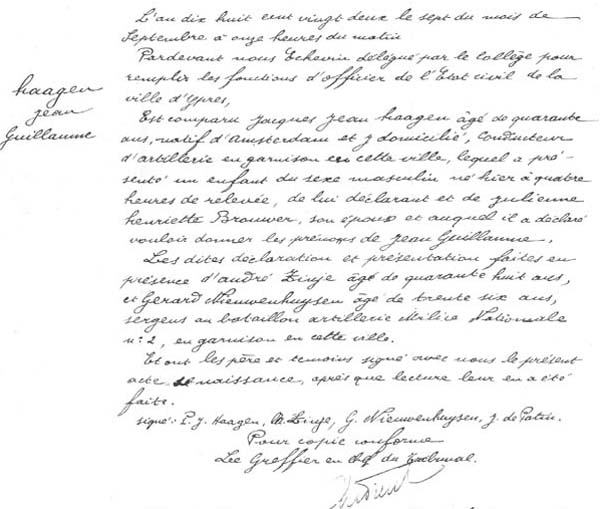 L'an dix huit cent vingt deux le sept du mois de
Septembre à onze heures du matin
Pardevant nous Echevin délégué par le Collège pour
remplir les fonctions d'officier de l'Etat civil de la
ville d'Ypres,
haagen
jean
Guillaume
Est comparu Jacques Jean haagen âgé de quarante
ans, natif d'Amsterdam et y domicilié, Conducteur
d'artillerie en garnison en cette ville, lequel a pré-
senté un enfant du sexe masculin né hier à quatre
heures de relevée, de lui déclarant et de Julienne
henriette Brouwer, son épous et auquel il a déclaré
vouloir donner les prénoms de Jean Guillaume.
Les dites déclaration et présentation faites en
présence d'andré Linje âgé de quarante huit ans,
et Gerard Nieuwenhuysen âge de trente six ans,
sergens au bataillon artillerie Milice Nationale
n: 2, en garnison en cette ville.
Et ont les père et temoins signé avec nous le présent
acte de naissance, après que lecture leur en a été
faite.
signé: P. J. Haagen, A. Linje, G. Nieuwenhuysen, J. de Patin.
Pour copie conforme
Le Greffier en chef du Tribunal.